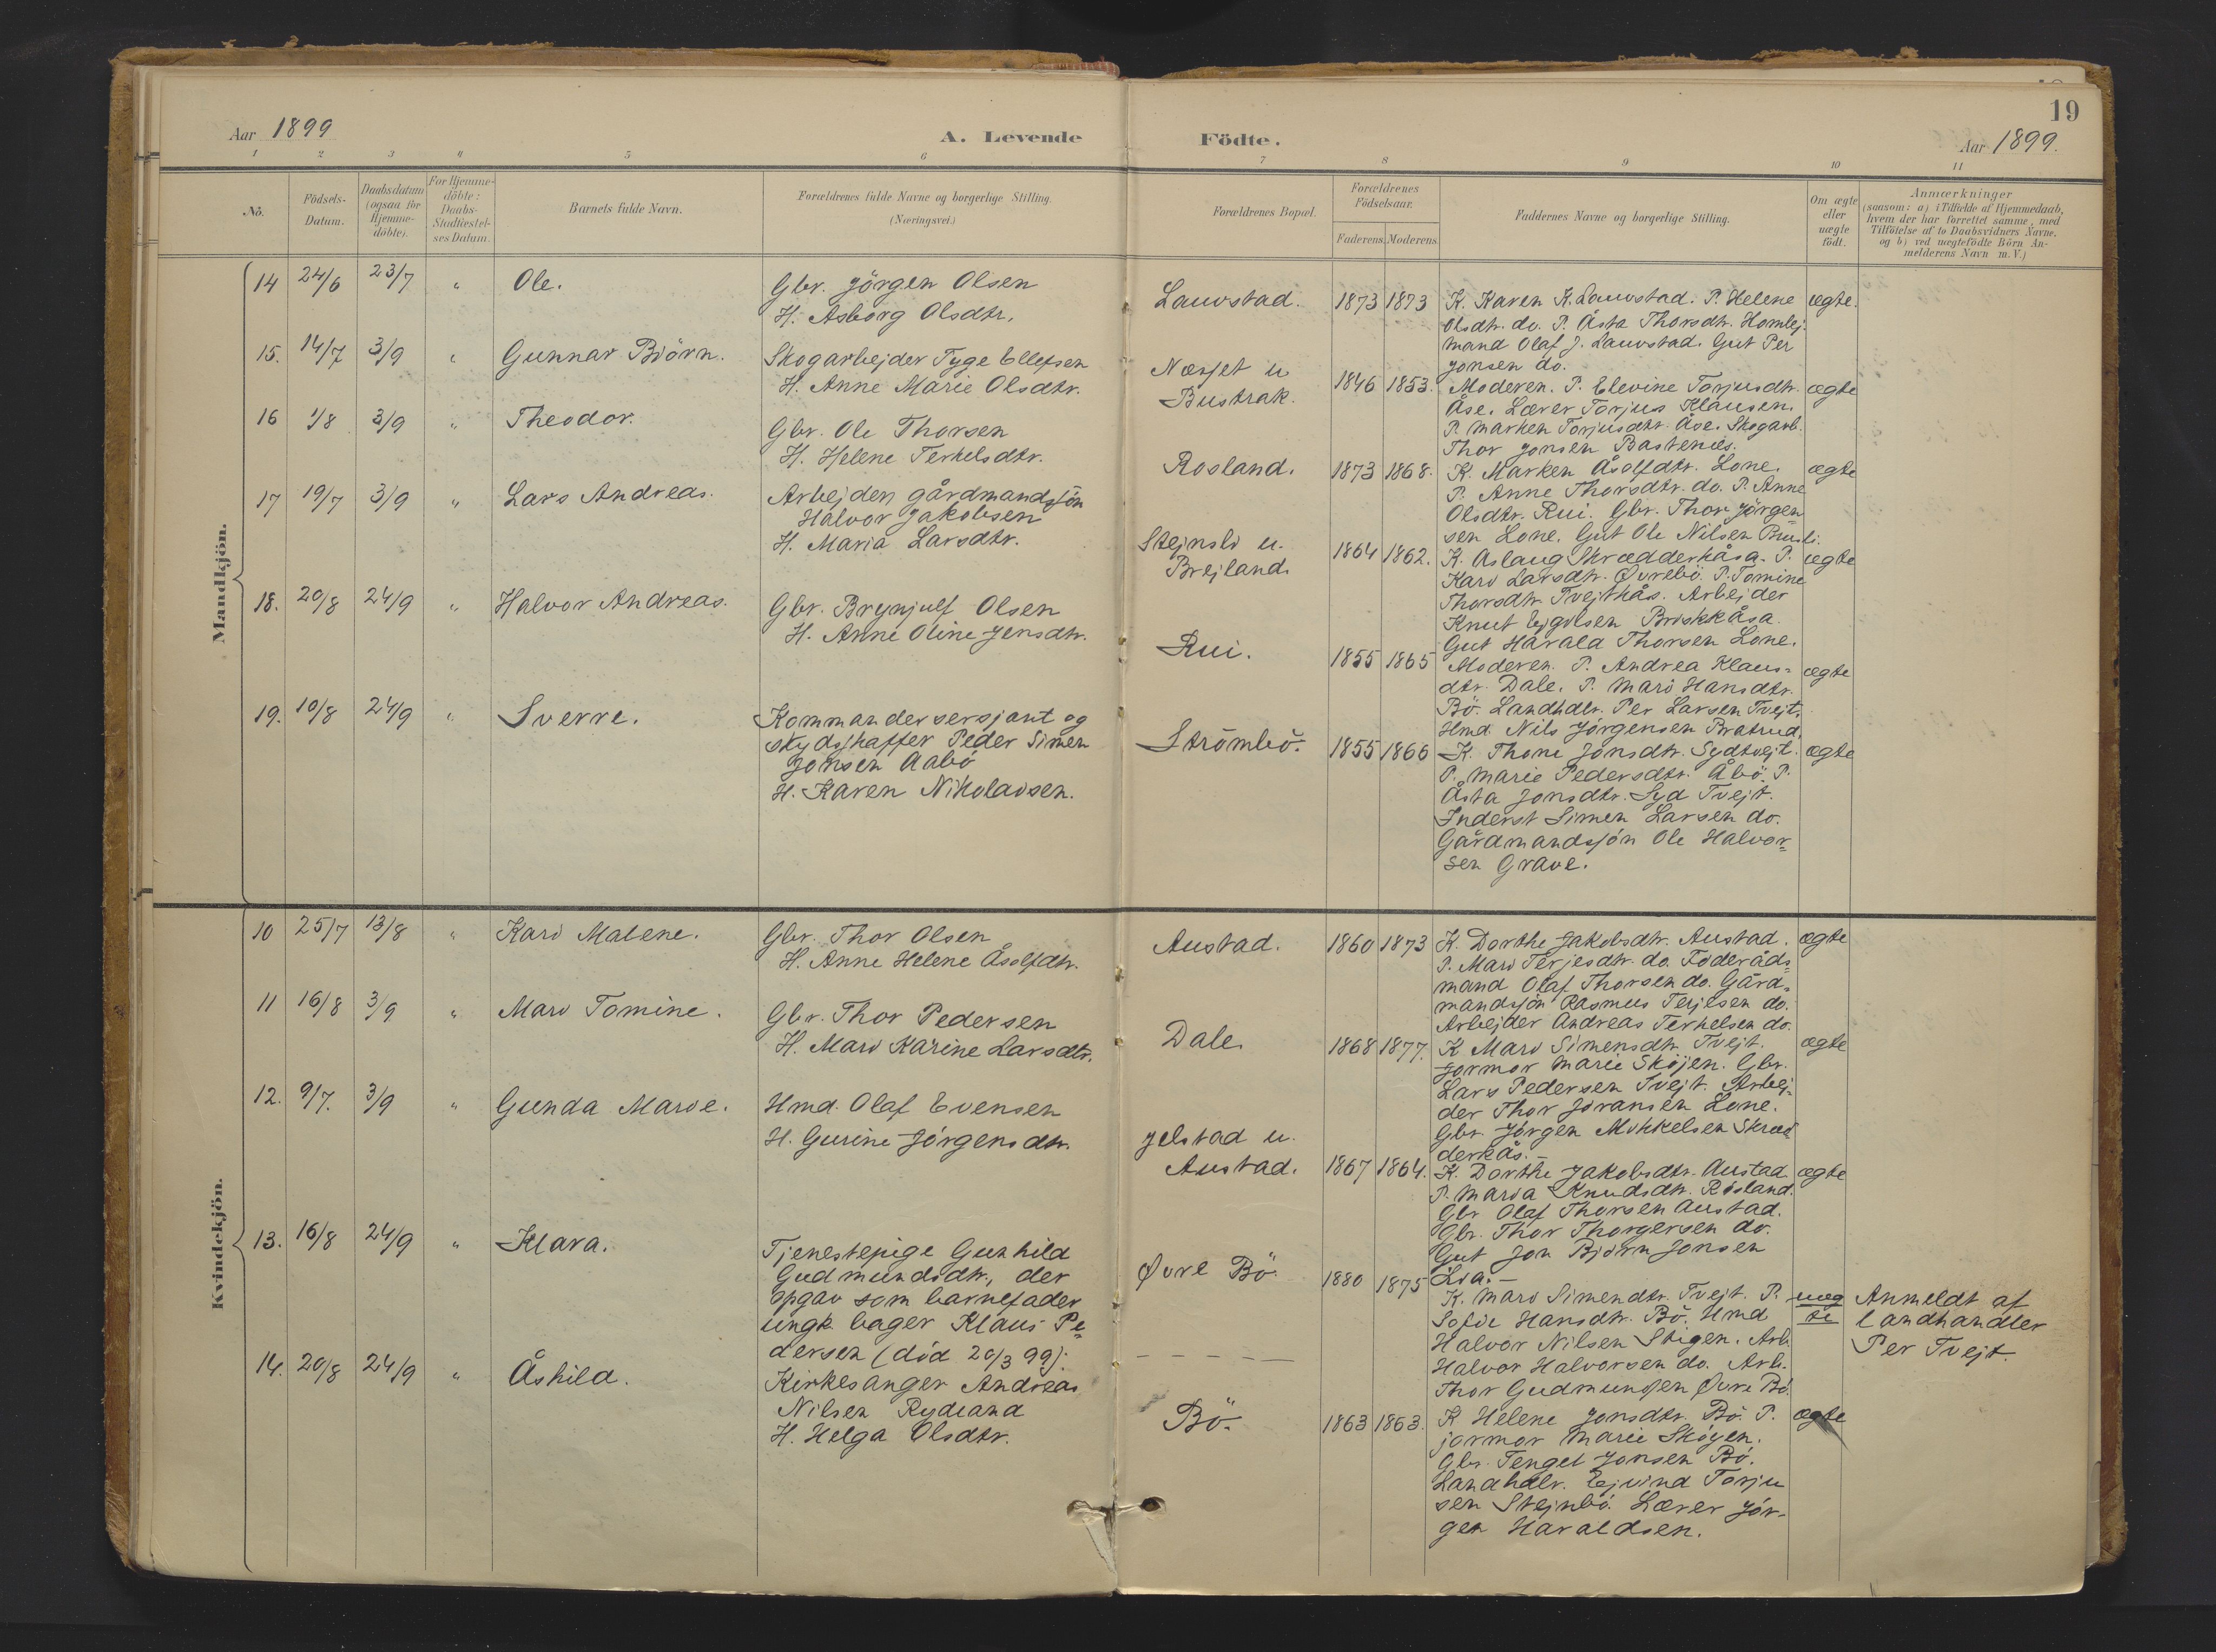 19
Aar 1899
A. Levende Födte.
Aar 1899.
1 2 3 4 5 6 7 8 9 10 11
No.
Födsels-Datum.
Daabsdatum (ogsaa for Hjemme-döbte).
For Hjemme-döbte: Daabs-Stadfæstel-ses Datum.
Barnets fulde Navn.
Forældrenes fulde Navne og borgerlige Stilling.
(Næringsvei.)
Forældrenes Bopæl.
Forældrenes Födselsaar.
Faderens. Moderens.
Faddernes Navne og borgerlige Stilling.
Om ægte eller uægte födt.
Anmærkninger
(saasom: a) i Tilfælde af Hjemmedaab,
hvem der har forrettet samme, med
Tilföielse af to Daabsvidners Navne,
og b) ved uægtefödte Börn An-
melderens Navn m. V.)
Mandkjön.
14 24/6 23/7 " Ole.
Gbr. Jörgen Olsen
H. Asborg Olsdtr.
Lauvstad. 1873 1873
K. Karen K. Lauvstad. P. Helene
Olsdtr. do. P. Åsta Thorsdtr. Homlej.
mand Olaf J. Lauvstad. Gut Per
Jonsen do.
ægte.
15. 14/7 3/9 " Gunnar Björn.
Skogarbejder Tyge Ellefsen
H. Anne Marie Olsdtr.
Næsjet u.
Bustrak.
1846 1853.
Moderen. P. Elevine Torjusdtr.
Åse. Lærer Torjus Klausen.
P. Marken Torjusdtr. Åse. Skogarb.
Thor Jonsen Bastenæs.
ægte
16 1/8 3/9 " Theodor.
Gbr. Ole Thorsen
H. Helene Terkelsdtr.
Rosland. 1873 1868.
K. Marken Åsolfdtr. Lone.
P. Anne Thorsdtr. do. P. Anne
Olsdtr. Rui. Gbr. Thor Jörgen
sen Lone. Gut Ole Nilsen
ægte
17 19/7 3/9 " Lars Andreas.
Arbejder gårdmandsjön
Halvor Jakobsen
H. Maria Larsdtr.
Stejnsli u.
Brejland.
1864 1862.
K. Aslaug Skrædderkåsa. P.
Kari Larsdtr. Øvrebö. P. Tomine
Thorsdtr. Tvejthås. Arbejder
Knut Briskkåsa.
Gut Harald Thorsen Lone.
ægte
18. 20/8 24/9 " Halvor Andreas.
Gbr. Brynjulf Olsen
H. Anne Oline Jensdtr.
Rui. 1855 1865
Moderen. P. Andrea Klaus-
dtr. Dale. P. Mari Hansdtr.
Bö. Landhdlr. Per Larsen Tvejt.
Hmd. Nils Jörgensen Bratrud.
ægte
19. 10/8 24/9 " Sverre.
Kommandersersjant og
skydsskaffer Peder Simen
Jonsen Aabö
H. Karen Nikolaisen.
Strömbö. 1855 1866
K. Thone Jonsdtr. Sydtvejt.
P. Marie Pedersdtr. Åbö. P.
Åsta Jonsdtr. Syd Tvejt.
Inderst Simen Larsen do.
Gårdmandsjön Ole Halvor-
sen Grave.
ægte
Kvindekjön.
10 25/7 13/8 " Kari Malene.
Gbr. Thor Olsen
H. Anne Helene Åsolfdtr.
Austad. 1860 1873
K. Dorthe Jakobsdtr. Austad.
P. Mari Terjesdtr. do. Föderåds-
mand Olaf Thorsen do. Gård-
mandsjön Rasmus Terjesen do.
Arbejder Andreas Terkelsen do.
ægte
11 16/8 3/9 " Mari Tomine.
Gbr. Thor Pedersen
H. Mari Karine Larsdtr.
Dale. 1868 1877.
K. Mari Simensdtr. Tvejt.
Jormor Marie Sköjen. Gbr.
Lars Pedersen Tvejt. Arbej-
der Thor Joransen Lone.
Gbr. Jörgen Mikkelsen Skræd
derkås.
ægte
12. 9/7. 3/9 " Gunda Marie.
Hmd. Olaf Evensen
H. Gurine Jörgensdtr.
Jelstad u.
Austad.
1867 1864.
K. Dorthe Jakobsdtr. Austad.
P. Maria Knudsdtr. Rosland.
Gbr. Olaf Thorsen Austad.
Gbr. Thor Thorgersen do.
Gut Jon Björn Jonsen
Lia.
ægte
13. 16/8 24/9 " Klara.
Tjenestepige Gunhild
Gudmundsdtr, der
opgav som barnefader
ungk. bager Klaus Pe-
dersen (död 20/3 99).
Øvre Bö. 1880 1875
K. Mari Simendtr. Tvejt. P.
Sofie Hansdtr. Bö. Hmd
Halvor Nilsen Stigen. Arb.
Halvor Halvorsen do. Arb.
Thor Gudmundsen Øvre Bö.
uæg
te
Anmeldt af
landhandler
Per Tvejt.
14. 20/8 24/9 " Åshild.
Kirkesanger Andreas
Nilsen Rydland
H. Helga Olsdtr.
Bö. 1863 1863.
K. Helene Jonsdtr. Bö. P.
jormor Marie Sköyen.
Gbr. Tengel Jonsen Bö.
Landhdlr. Ejvind Torju
sen Stejnbö. Lærer Jör-
gen Haraldsen.
ægte